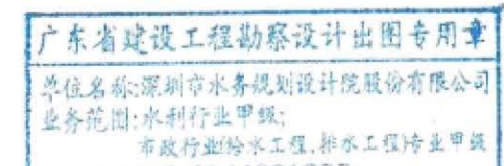 广东省建设工程勘察设计出图专用章
单位名称:深圳市水务规划设计院股份有限公司
业务范围:水利行业甲级;
市政行业(给水工程、排水工程)专业甲级